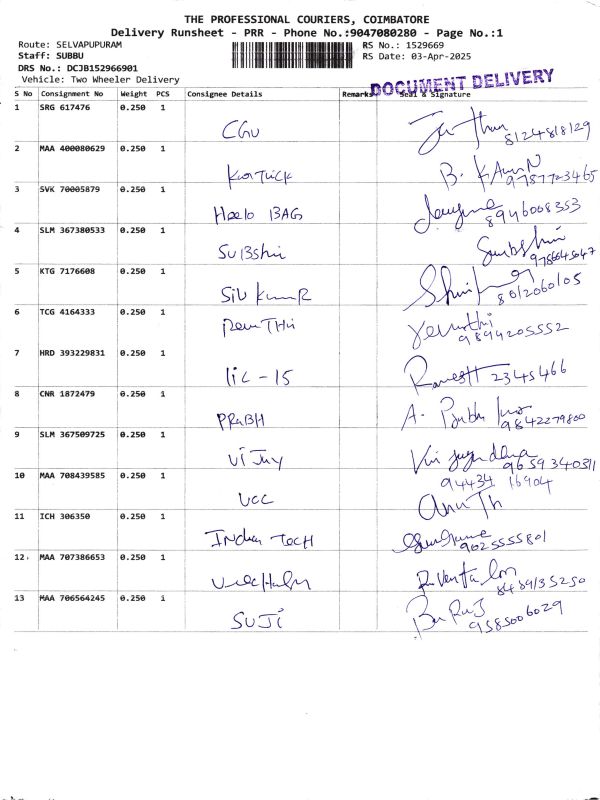 THE PROFESSIONAL COURIERS, COIMBATORE
Delivery Runsheet - PRR - Phone No.:9047080280 - Page No.:1
Route: SELVAPUPURAM RS No.: 1529669
Staff: SUBBU RS Date: 03-Apr-2025
DRS No.: DCJB152966901
Vehicle: Two Wheeler Delivery DOCUMENT DELIVERY
S No Consignment No Weight PCS Consignee Details Remarks Seal & Signature
1 SRG 617476 0.250 1
CGU 8124818129
2 MAA 400080629 0.250 1
Karthick B. 9787723465
3 SVK 70005879 0.250 1
Hello BAG 8946008353
4 SLM 367380533 0.250 1
SUBShini 9786645047
5 KTG 7176608 0.250 1
SIV KumaR 8012060105
6 TCG 4164333 0.250 1
RevaTHi 9894205552
7 HRD 393229831 0.250 1
lic - 15 Ramesh 2345466
8 CNR 1872479 0.250 1
PRABH A. 9842279800
9 SLM 367509725 0.250 1
ViJay 9659340311
10 MAA 708439585 0.250 1 94434 16904
UCC
11 ICH 306350 0.250 1
Indian TecH 9025555801
12 MAA 707386653 0.250 1
8489135250
13 MAA 706564245 0.250 1
SUJi 9585006029